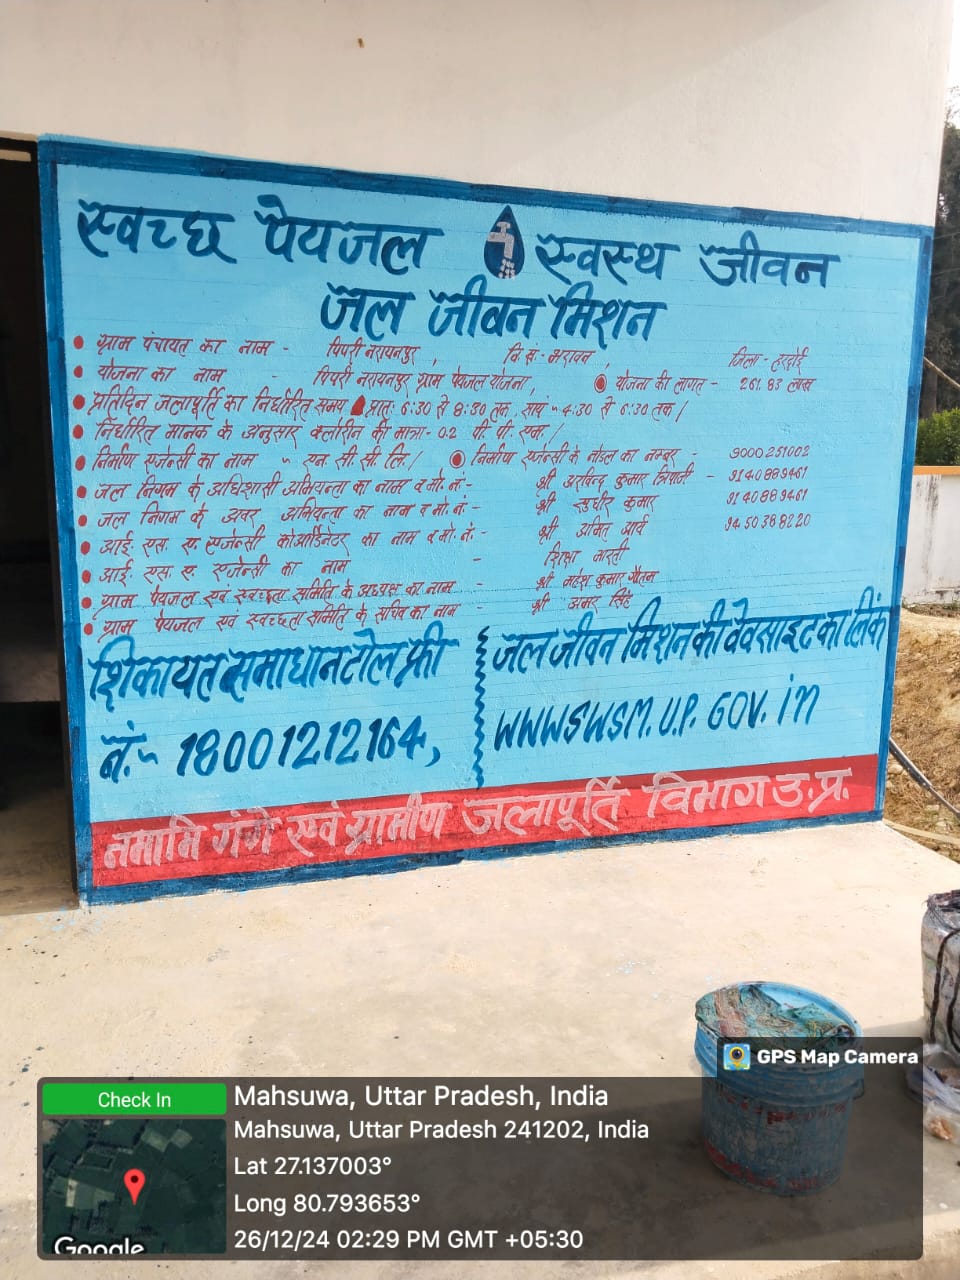 स्वच्छ पेयजल स्वस्थ जीवन
जल जीवन मिशन
ग्राम पंचायत का नाम - पिपरी नरायनपुर, वि.खं.- भरावन, जिला - हरदोई
योजना का नाम - पिपरी नरायनपुर ग्राम पेयजल योजना, योजना की लागत - 261.83 लाख
प्रतिदिन जलापूर्ति का निर्धारित समय प्रातः 6:30 से 8:30 तक, सायं - 4:30 से 6:30 तक/
निर्धारित मानक के अनुसार क्लोरीन की मात्रा - 0.2 पी. पी. एम./
निर्माण एजेन्सी का नाम - एन. सी. सी. लि./ निर्माण एजेन्सी के नोडल का नम्बर - 9000251002
जल निगम के अधिशासी अभियन्ता का नाम व मो. नं.- श्री अरविन्द कुमार त्रिपाठी - 9140889461
जल निगम के अवर अभियन्ता का नाम व मो. नं.- श्री सुधीर कुमार 9140889461
आई. एस. ए. एजेन्सी कोआर्डिनेटर का नाम व मो. नं.- श्री अमित आर्य 9450388220
आई. एस. ए. एजेन्सी का नाम - शिक्षा भारती
ग्राम पेयजल एवं स्वच्छता समिति के अध्यक्ष का नाम - श्री महेश कुमार गौतम
ग्राम पेयजल एवं स्वच्छता समिति के सचिव का नाम - श्री अमर सिंह
शिकायत समाधान टोल फ्री
नं.~ 18001212164,
जल जीवन मिशन की वेवसाइट का लिंक
WWWSWSM.U.P. GOV. in
नमामि गंगे एवं ग्रामीण जलापूर्ति विभाग उ.प्र.
GPS Map Camera
Check In
Mahsuwa, Uttar Pradesh, India
Mahsuwa, Uttar Pradesh 241202, India
Lat 27.137003°
Long 80.793653°
26/12/24 02:29 PM GMT +05:30
Google